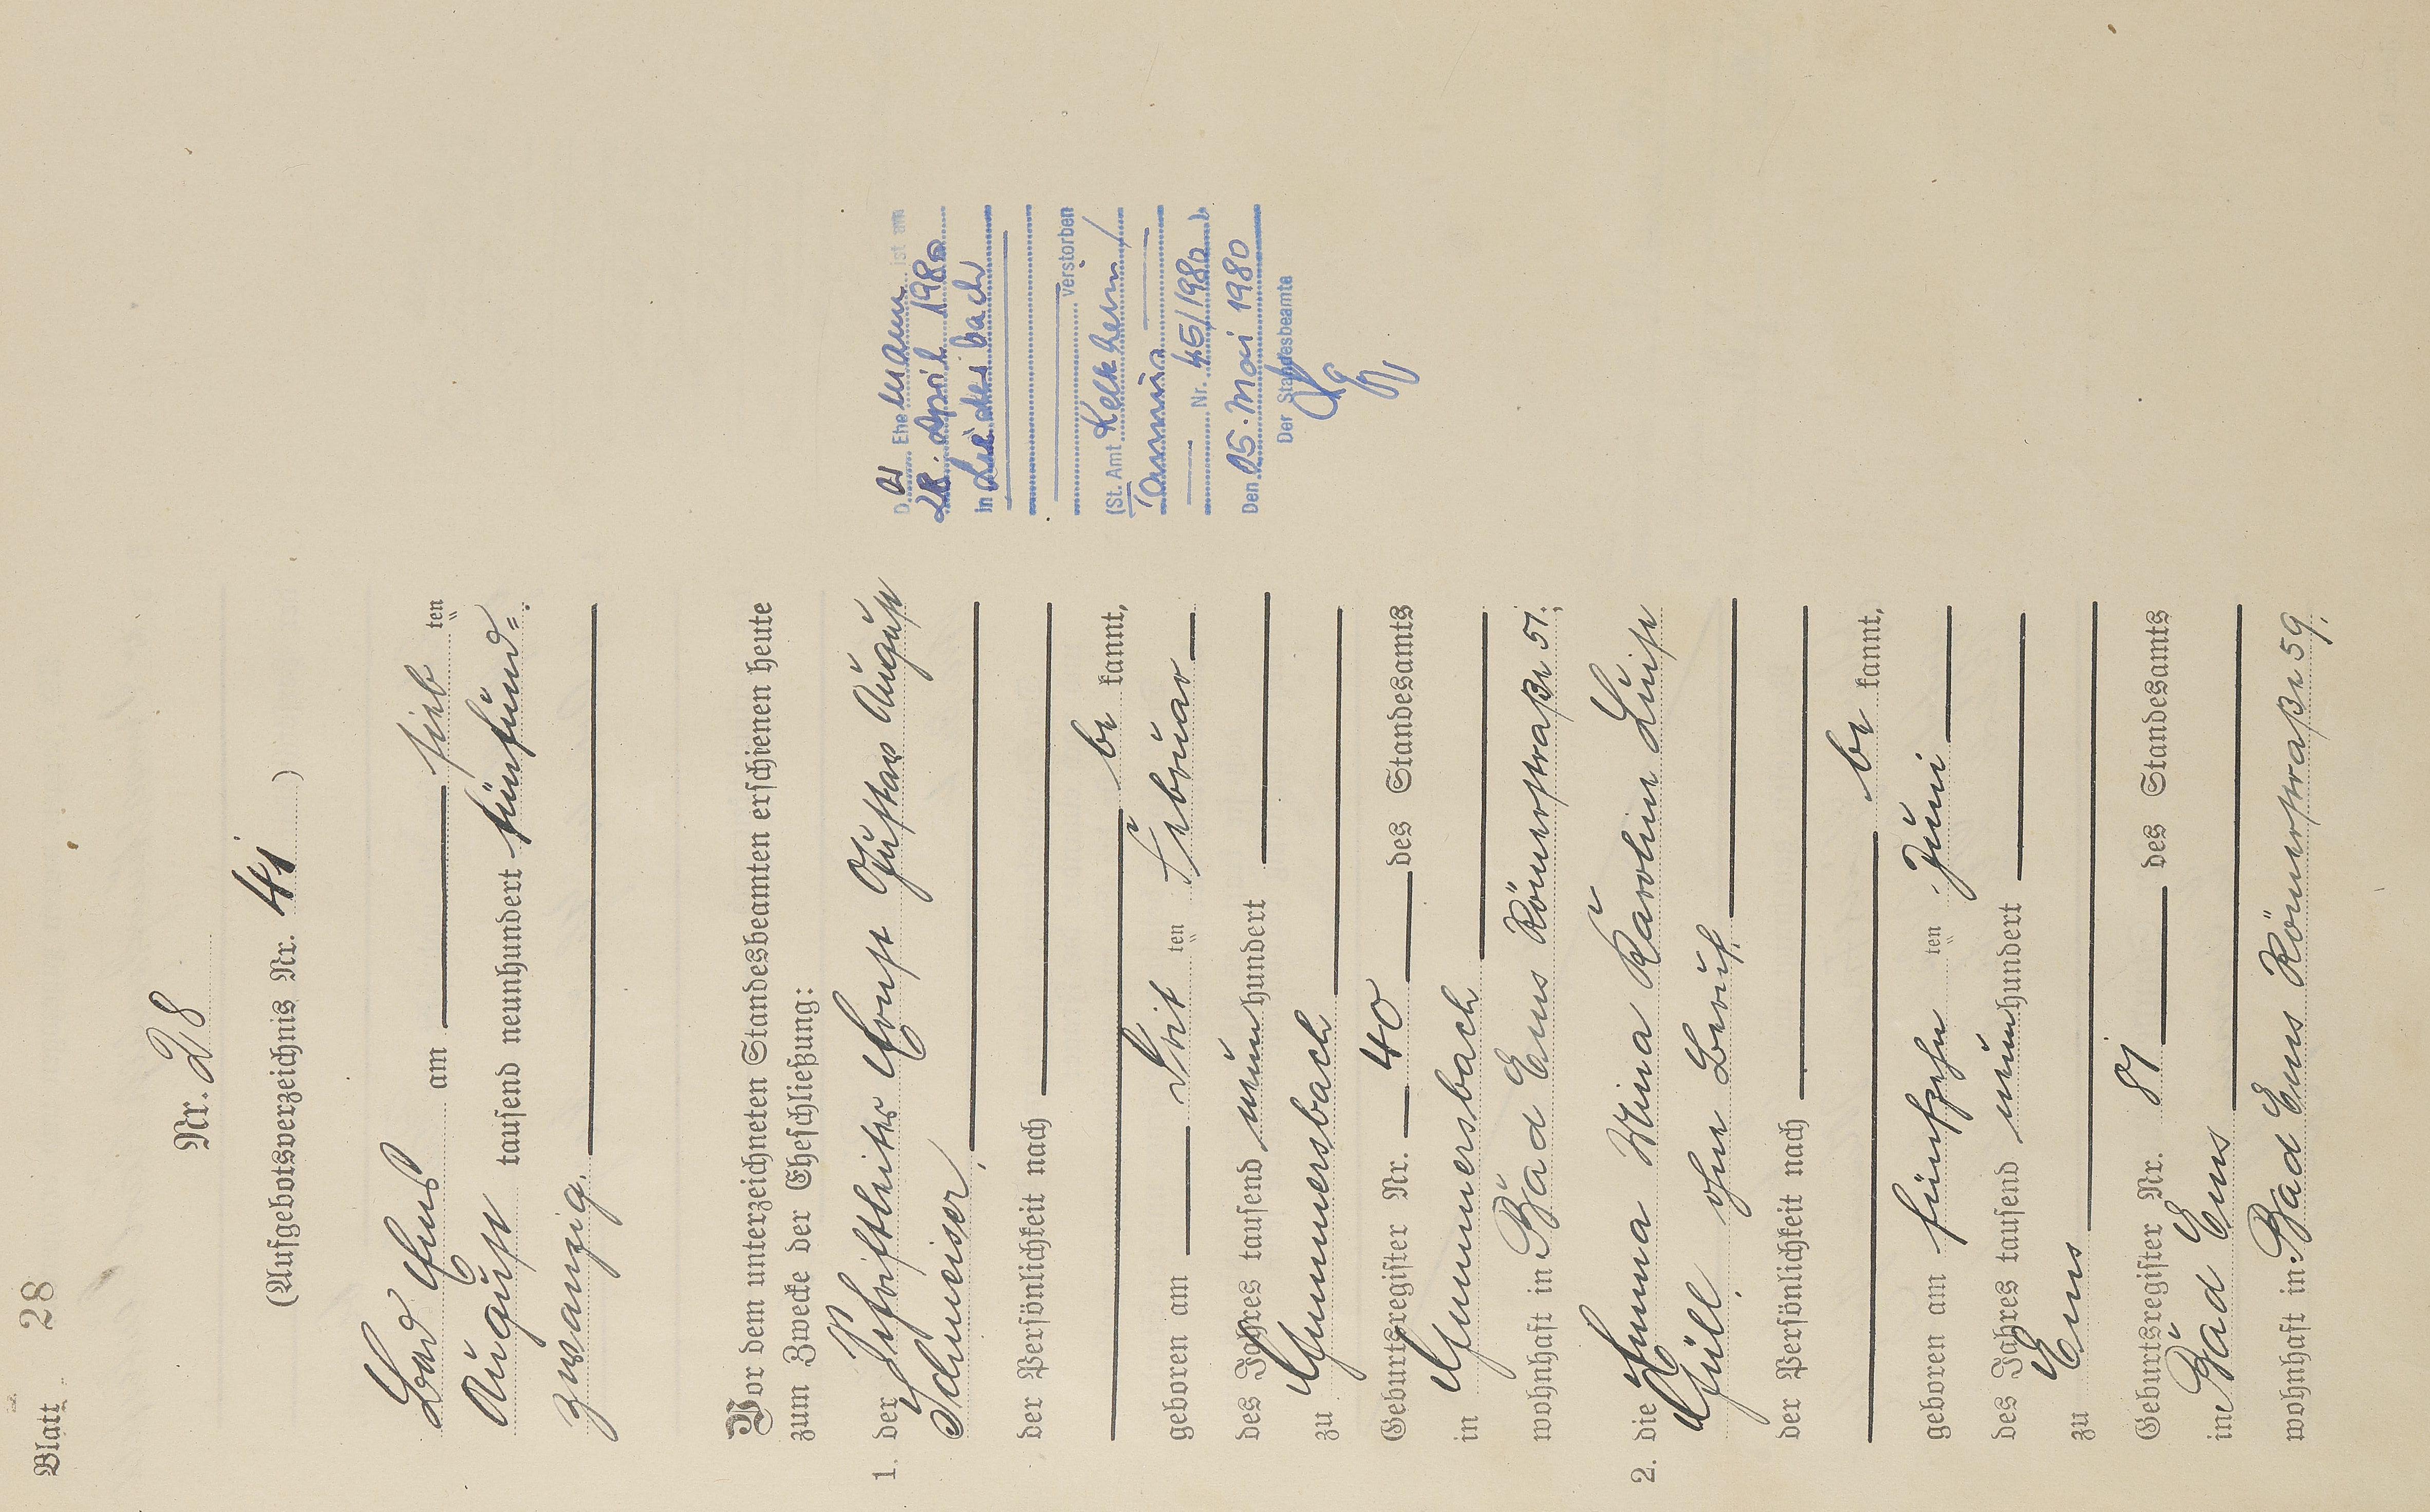 Blatt 28
Nr. 28
(Aufgebotsverzeichnis Nr. 41)
Bad Ems am sieb ten
August tausend neunhundert fünfund=
zwanzig.
Vor dem unterzeichneten Standesbeamten erschienen heute
zum Zwecke der Eheschließung:
1. der Schriftleiter Ernst Gustav August
Schmeisser,
der Persönlichkeit nach
be kannt,
geboren am drit ten Februar
des Jahres tausend neun hundert
zu Gummersbach
Geburtsregister Nr. 40 des Standesamts
in Gummersbach
wohnhaft in Bad Ems Römerstraße 51.;
2. die Emma Mina Karoline Luise
Güll, ohne Beruf,
der Persönlichkeit nach
be kannt,
geboren am fünfzehn ten Juni
des Jahres tausend neun hundert
zu Ems
Geburtsregister Nr. 81 des Standesamts
in Bad Ems
wohnhaft in Bad Ems Römerstraße 59.
D er Ehemann ist am
28. April 1980
in
verstorben
(St. Amt Kelkheim /
Taunus
Nr. 45/1980)
Den 05. Mai 1980
Der Standesbeamte